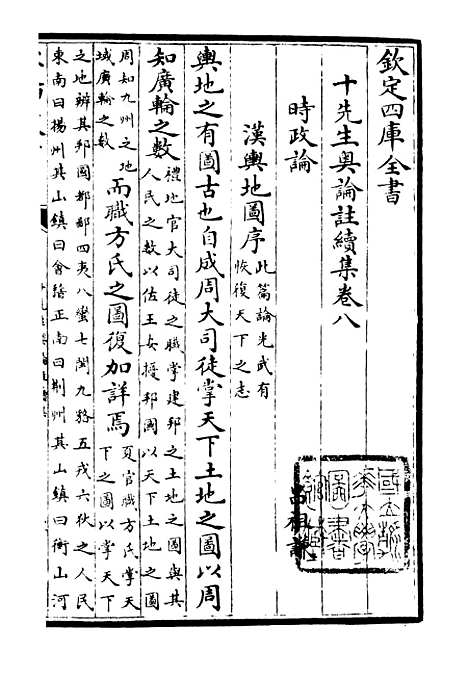 欽定四庫全書
十先生奥論註續集卷八
時政論
呂祖謙
漢輿地圖序此篇論光武有
恢復天下之志
輿地之有圖古也自成周大司徒掌天下土地之圖以周
知廣輪之數禮地官大司徒之職掌建邦之土地之圖與其
人民之數以佐王安擾邦國以天下土地之圖
周知九州之地
域廣輪之數
而職方氏之圖復加詳焉夏官職方氏掌天
下之圖以掌天下
之地辨其邦國都鄙四夷八蠻七閩九貉五戎六狄之人民
東南曰揚州其山鎮曰會稽正南曰荆州其山鎮曰衡山河